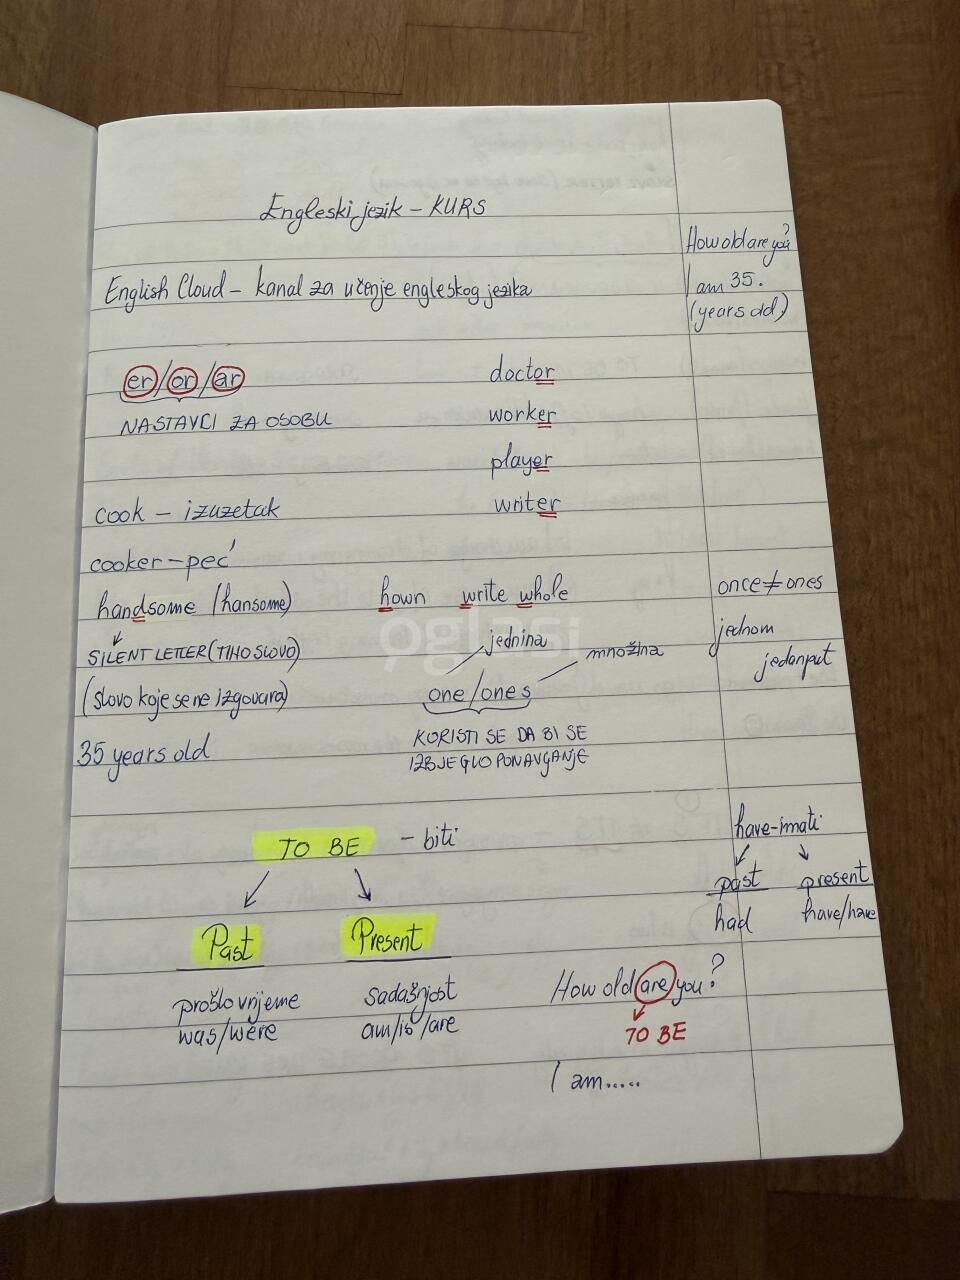 Engleski jezik - KURS
How old are you?
I am 35.
(years old)
English Cloud - kanal za učenje engleskog jezika
er/or/ar
NASTAVCI ZA OSOBU
doctor
worker
player
writer
cook - izuzetak
cooker - peć
handsome (hansome)
SILENT LETTER (TIHO SLOVO)
(slovo koje se ne izgovara)
35 years old
hown write whole
jednina
množina
one/ones
KORISTI SE DA BI SE
IZBJEGLO PONAVGANJE
once ≠ ones
jednom
jedanput
TO BE - biti
Past
Present
prošlo vrijeme
was/were
sadašnjost
am/is/are
have - imati
past
present
had
have/have
How old are you?
TO BE
I am.....
oglasi